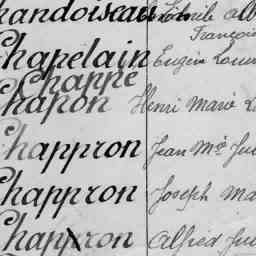 handoiseau Emile Alb
François
Chapelain Eugène Louis
Chappe
Chapon Henri Marie L
Chappron Jean Mie Jul
Chappron Joseph Ma
Chappron Alfred Jul